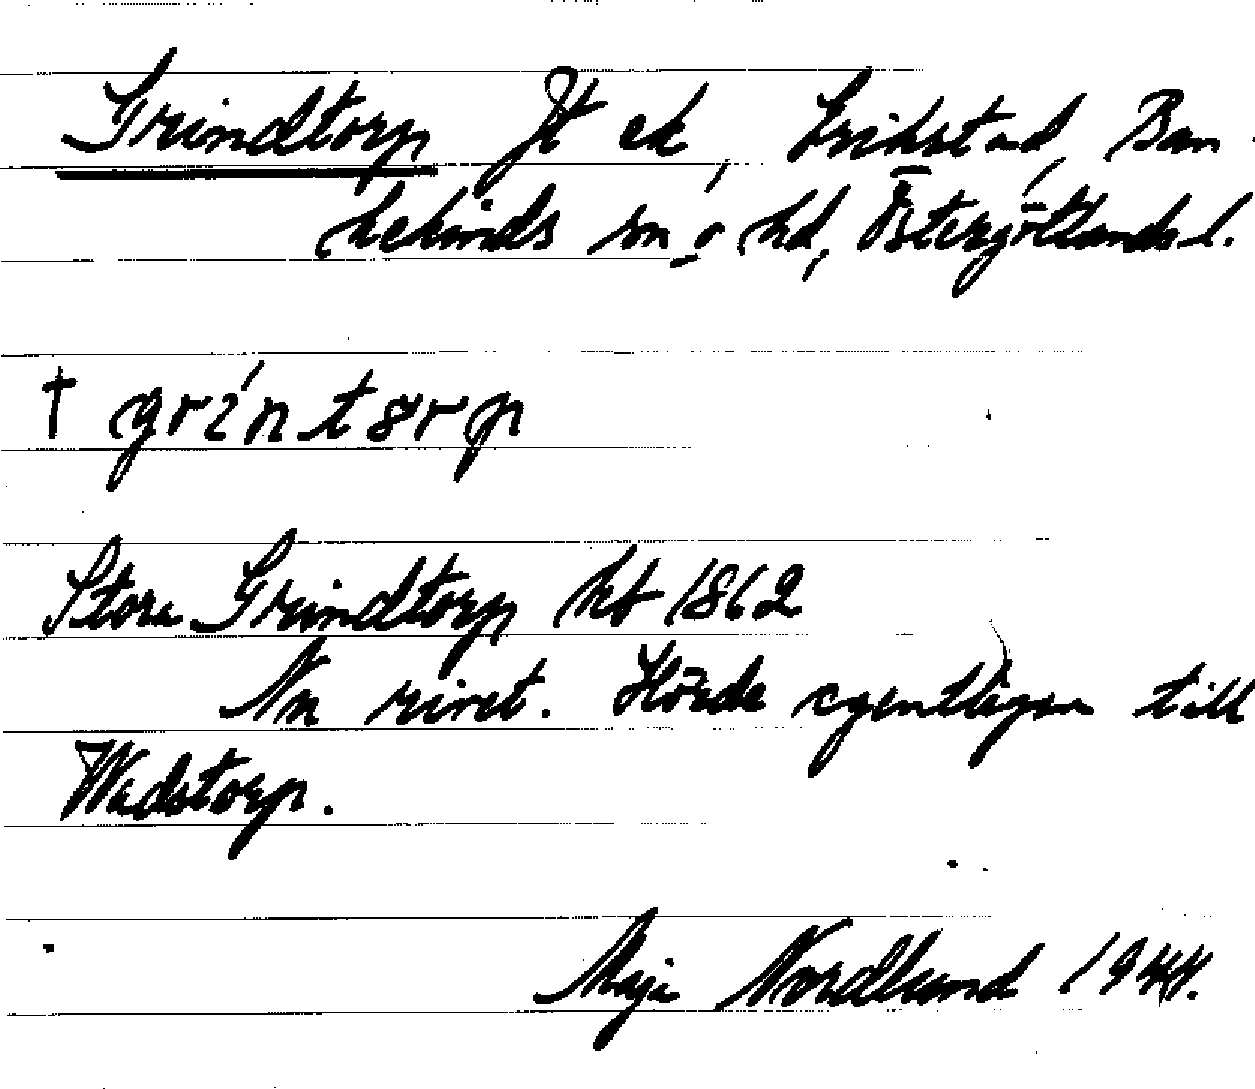 Grindtorp Jt ek, Erikstad, Ban-
kekinds sn o hd, Östergötlands l.
† gríntørp
Stora Grindtorp hf 1862
Nu rivet. Hörde egentligen till
Wadstorp.
Maja Nordlund 1944.